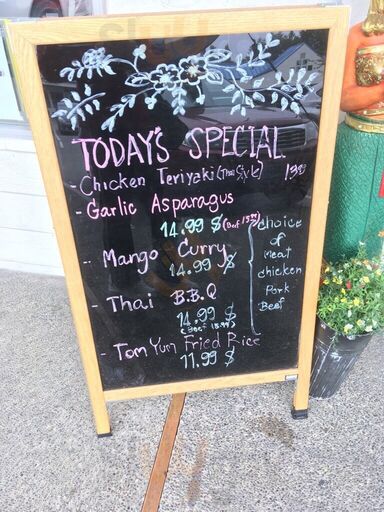 TODAY'S SPECIAL
- Chicken Teriyaki (Thai Style) 13.99
- Garlic Asparagus
14.99 $ (Beef 15.99)
- Mango Curry
14.99 $
- Thai B.B.Q
14.99 $
(Beef 15.99)
choice
of
meat
chicken
Pork
Beef
- Tom Yum Fried Rice
11.99 $